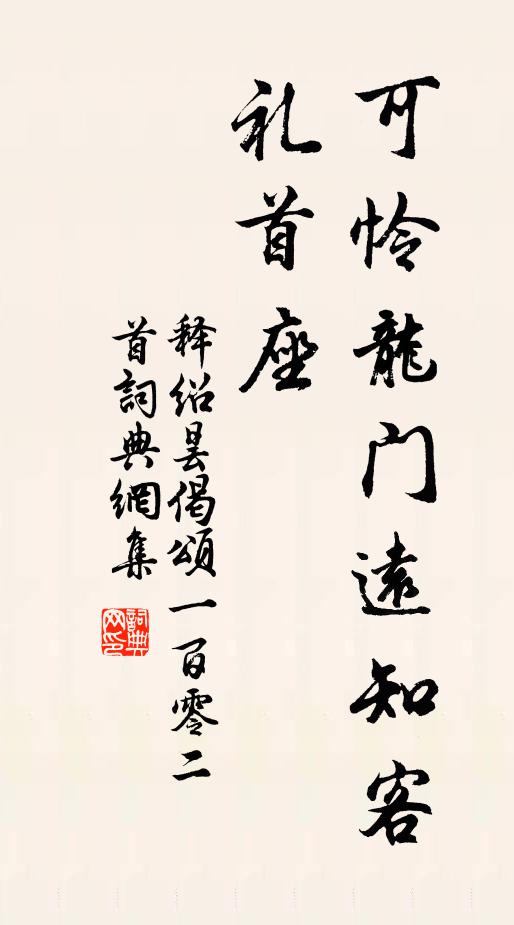 可怜龍门遠知客
礼首座
释绍昙偈頌一百零二
首詞典網集
詞典網印